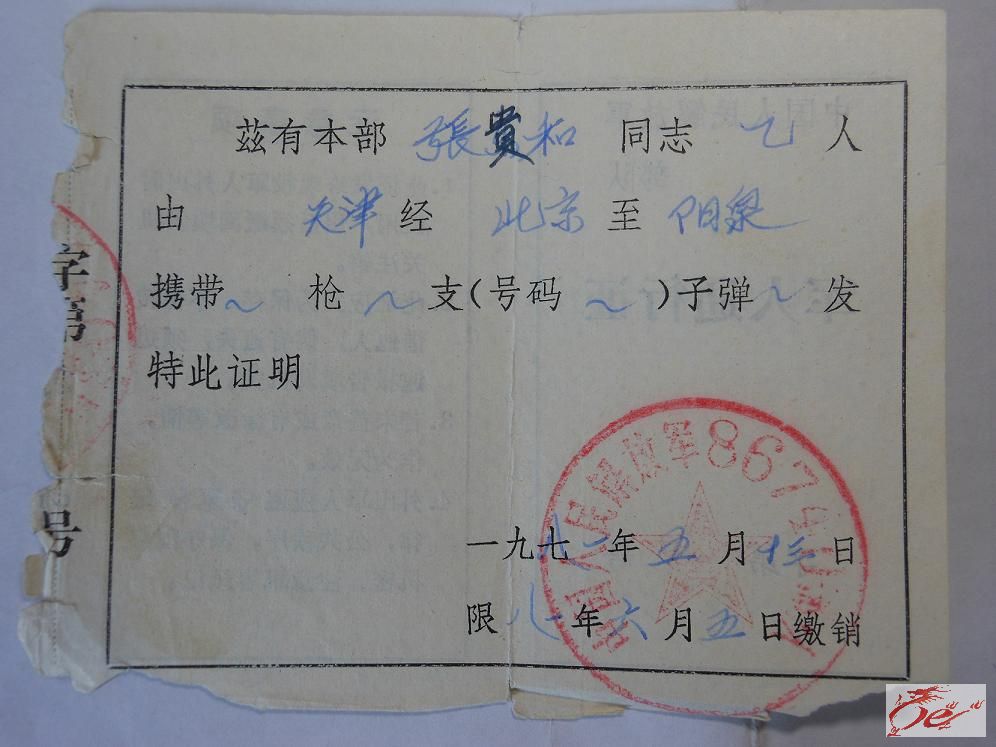 兹有本部 張貴和 同志 乙 人
由 天津 经 北京 至 阳泉
携带 ~ 枪 ~ 支(号码 ~ )子弹 ~ 发
特此证明
一九七八一年 五 月 十三 日
限 八一 年 六 月 五 日缴销
中国人民解放军
字第
号